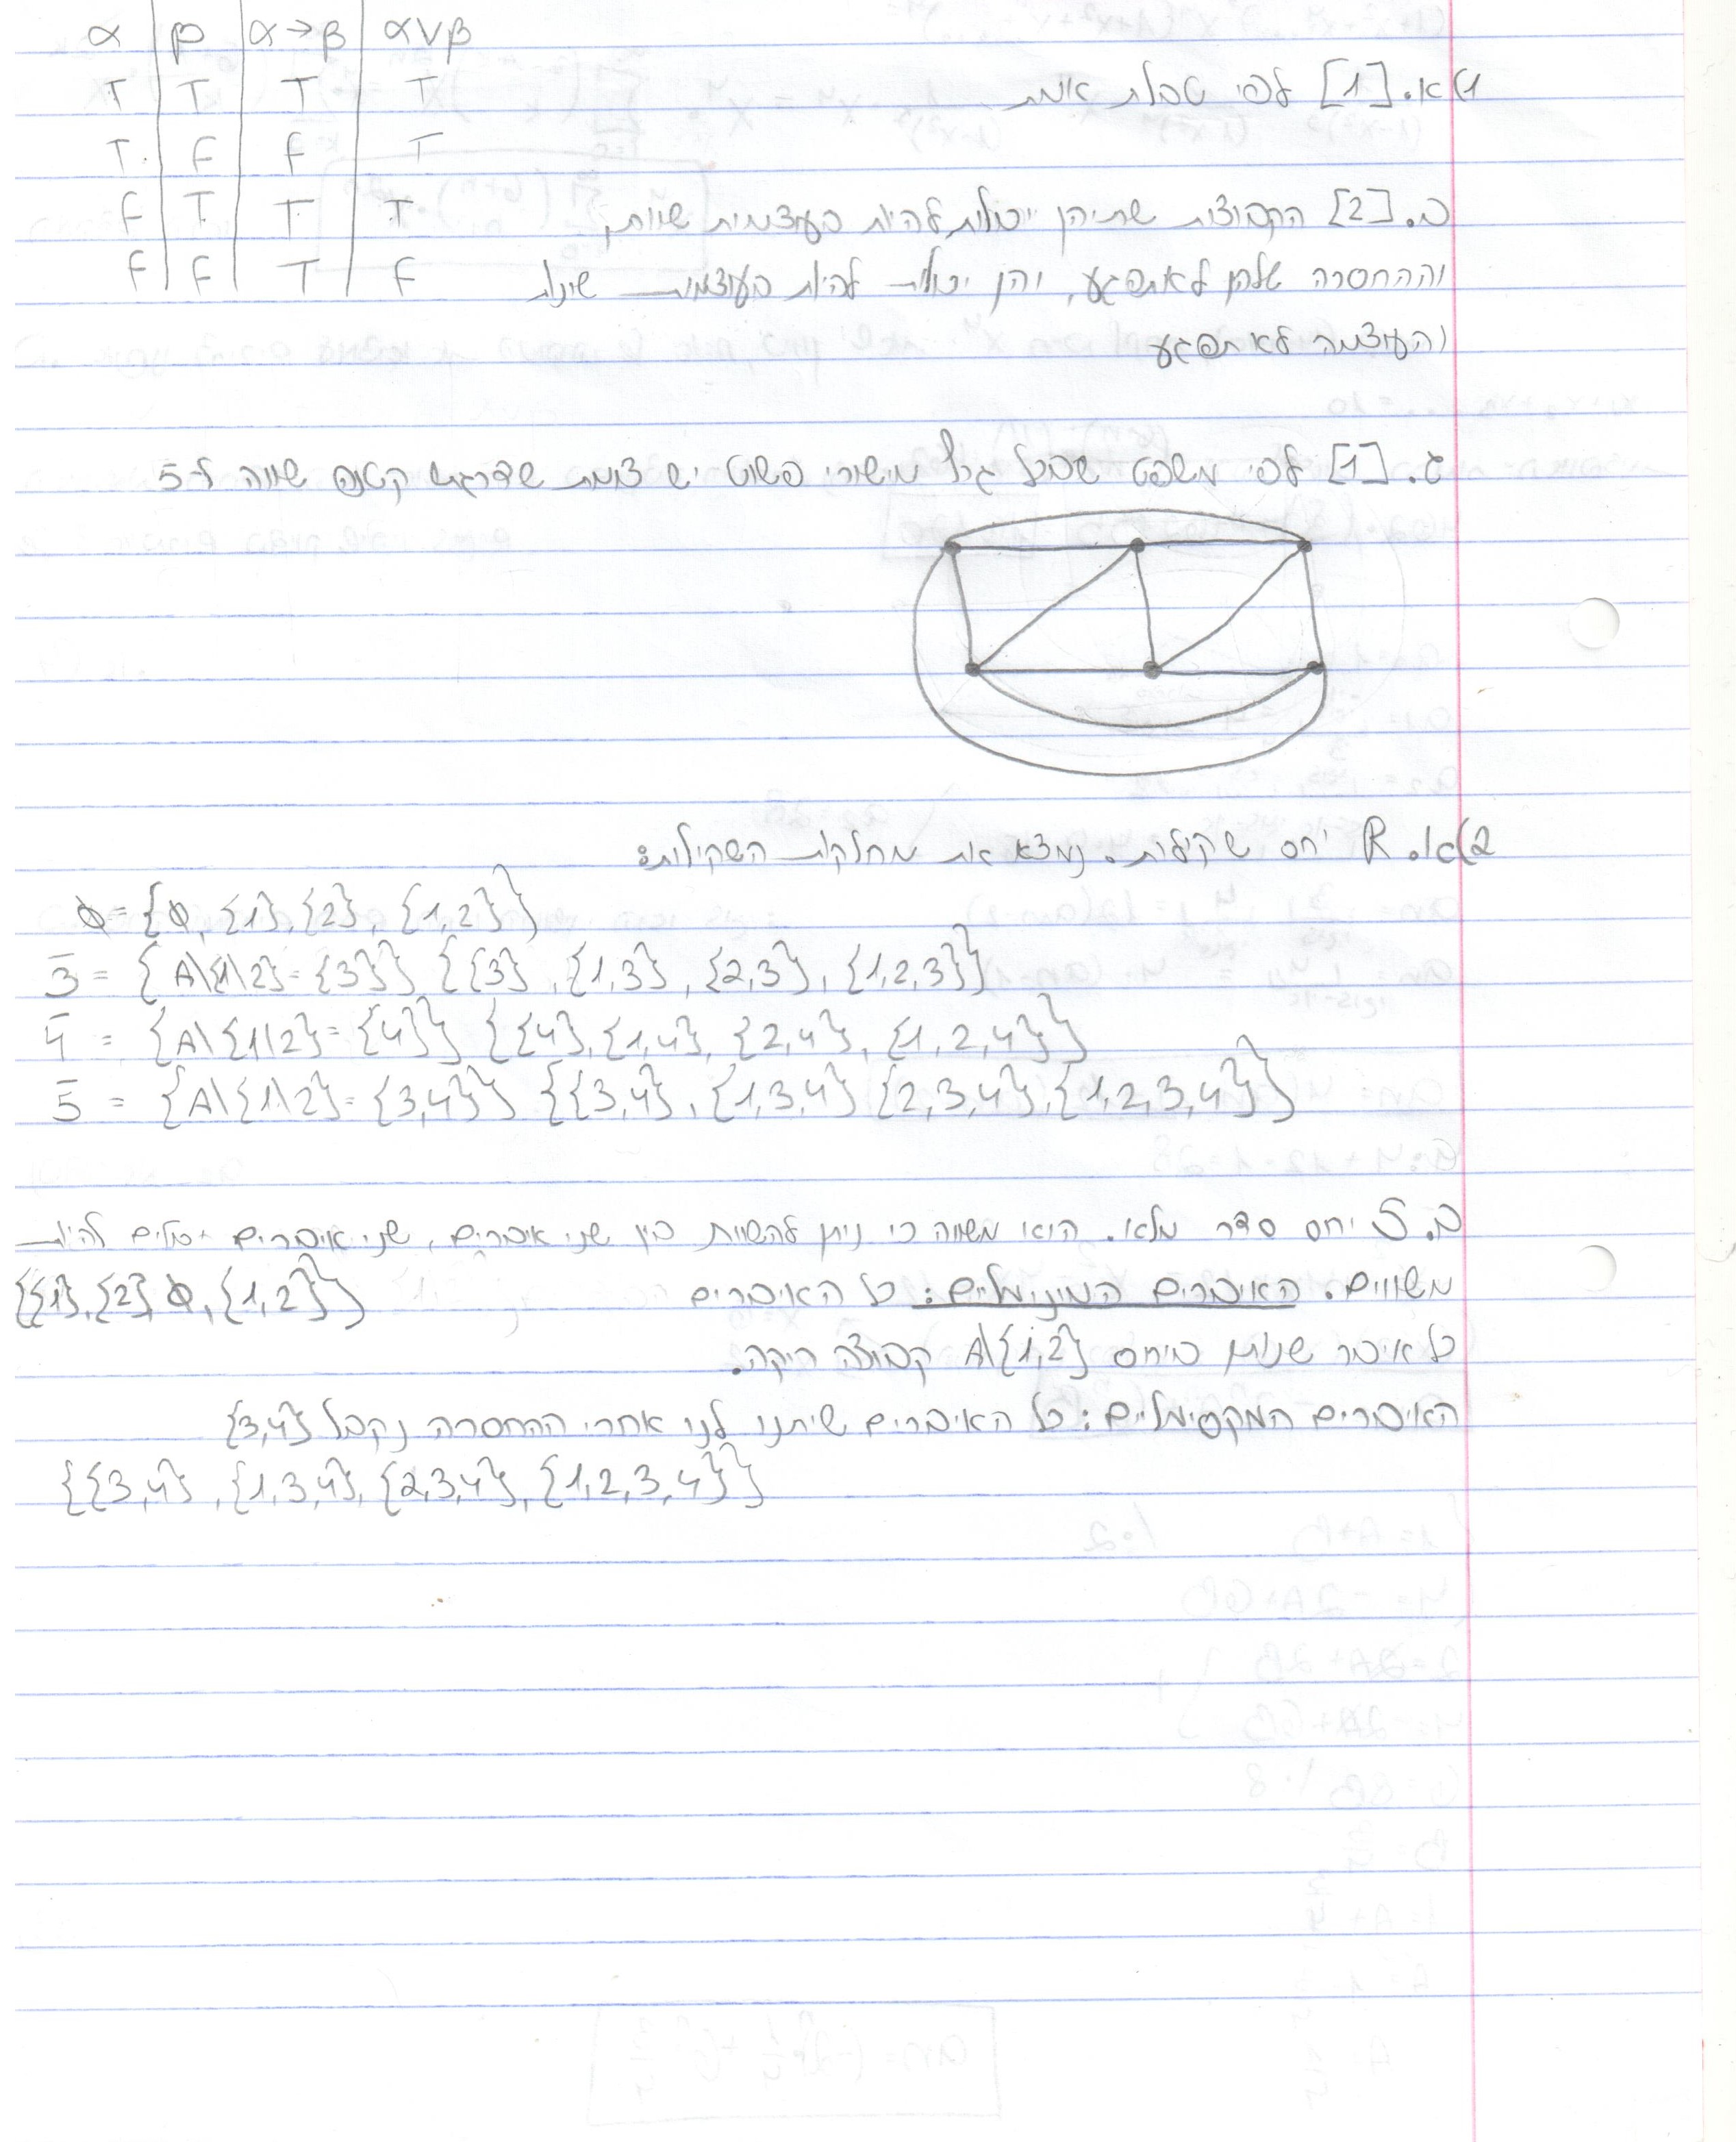 α β α→β α∨β
T T T T
T F F T
F T T T
F F T F
1) א. [1] לפי טבלת אמת
ב. [2] הקבוצות שתיהן יכולות להיות בעוצמות שוות,
וההחסרה שלהן לא תפגע, והן יכולות להיות בעוצמות שונות
והעוצמה לא תפגע
ג. [1] לפי משפט שבכל גרף מישורי פשוט יש צומת שדרגתו קטנה שווה ל-5
2) א. R יחס שקילות. נמצא את מחלקות השקילות:
Φ = {Φ, {1}, {2}, {1,2}}
3̄ = {A\{1\2} = {3}} {{3}, {1,3}, {2,3}, {1,2,3}}
4̄ = {A\{1\2} = {4}} {{4}, {1,4}, {2,4}, {1,2,4}}
5̄ = {A\{1\2} = {3,4}} {{3,4}, {1,3,4} {2,3,4}, {1,2,3,4}}
ב. S יחס סדר מלא. הוא משווה כי ניתן להשוות בין שני איברים, שני איברים יכולים להיות
משווים. האיברים המינימליים: כל האיברים {{1}, {2}, Φ, {1,2}}
כל איבר שנותן ביחס A\{1,2} קבוצה ריקה.
האיברים המקסימליים: כל האיברים שיתנו לנו אחרי ההחסרה נקבל {3,4}
{{3,4}, {1,3,4}, {2,3,4}, {1,2,3,4}}